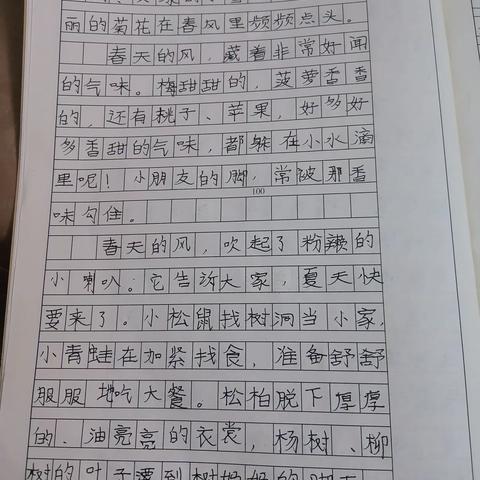 丽的菊花在春风里频频点头。
春天的风，藏着非常好闻
的气味。梅甜甜的，菠萝香香
的，还有桃子、苹果，好多好
多香甜的气味，都躲在小水滴
里呢！小朋友的脚，常被那香
100
味勾住。
春天的风，吹起了粉嫩的
小喇叭：它告诉大家，夏天快
要来了。小松鼠找树洞当小家，
小青蛙在加紧找食，准备舒舒
服服地吃大餐。松柏脱下厚厚
的、油亮亮的衣裳，杨树、柳
树的叶子漂到树妈妈的脚下